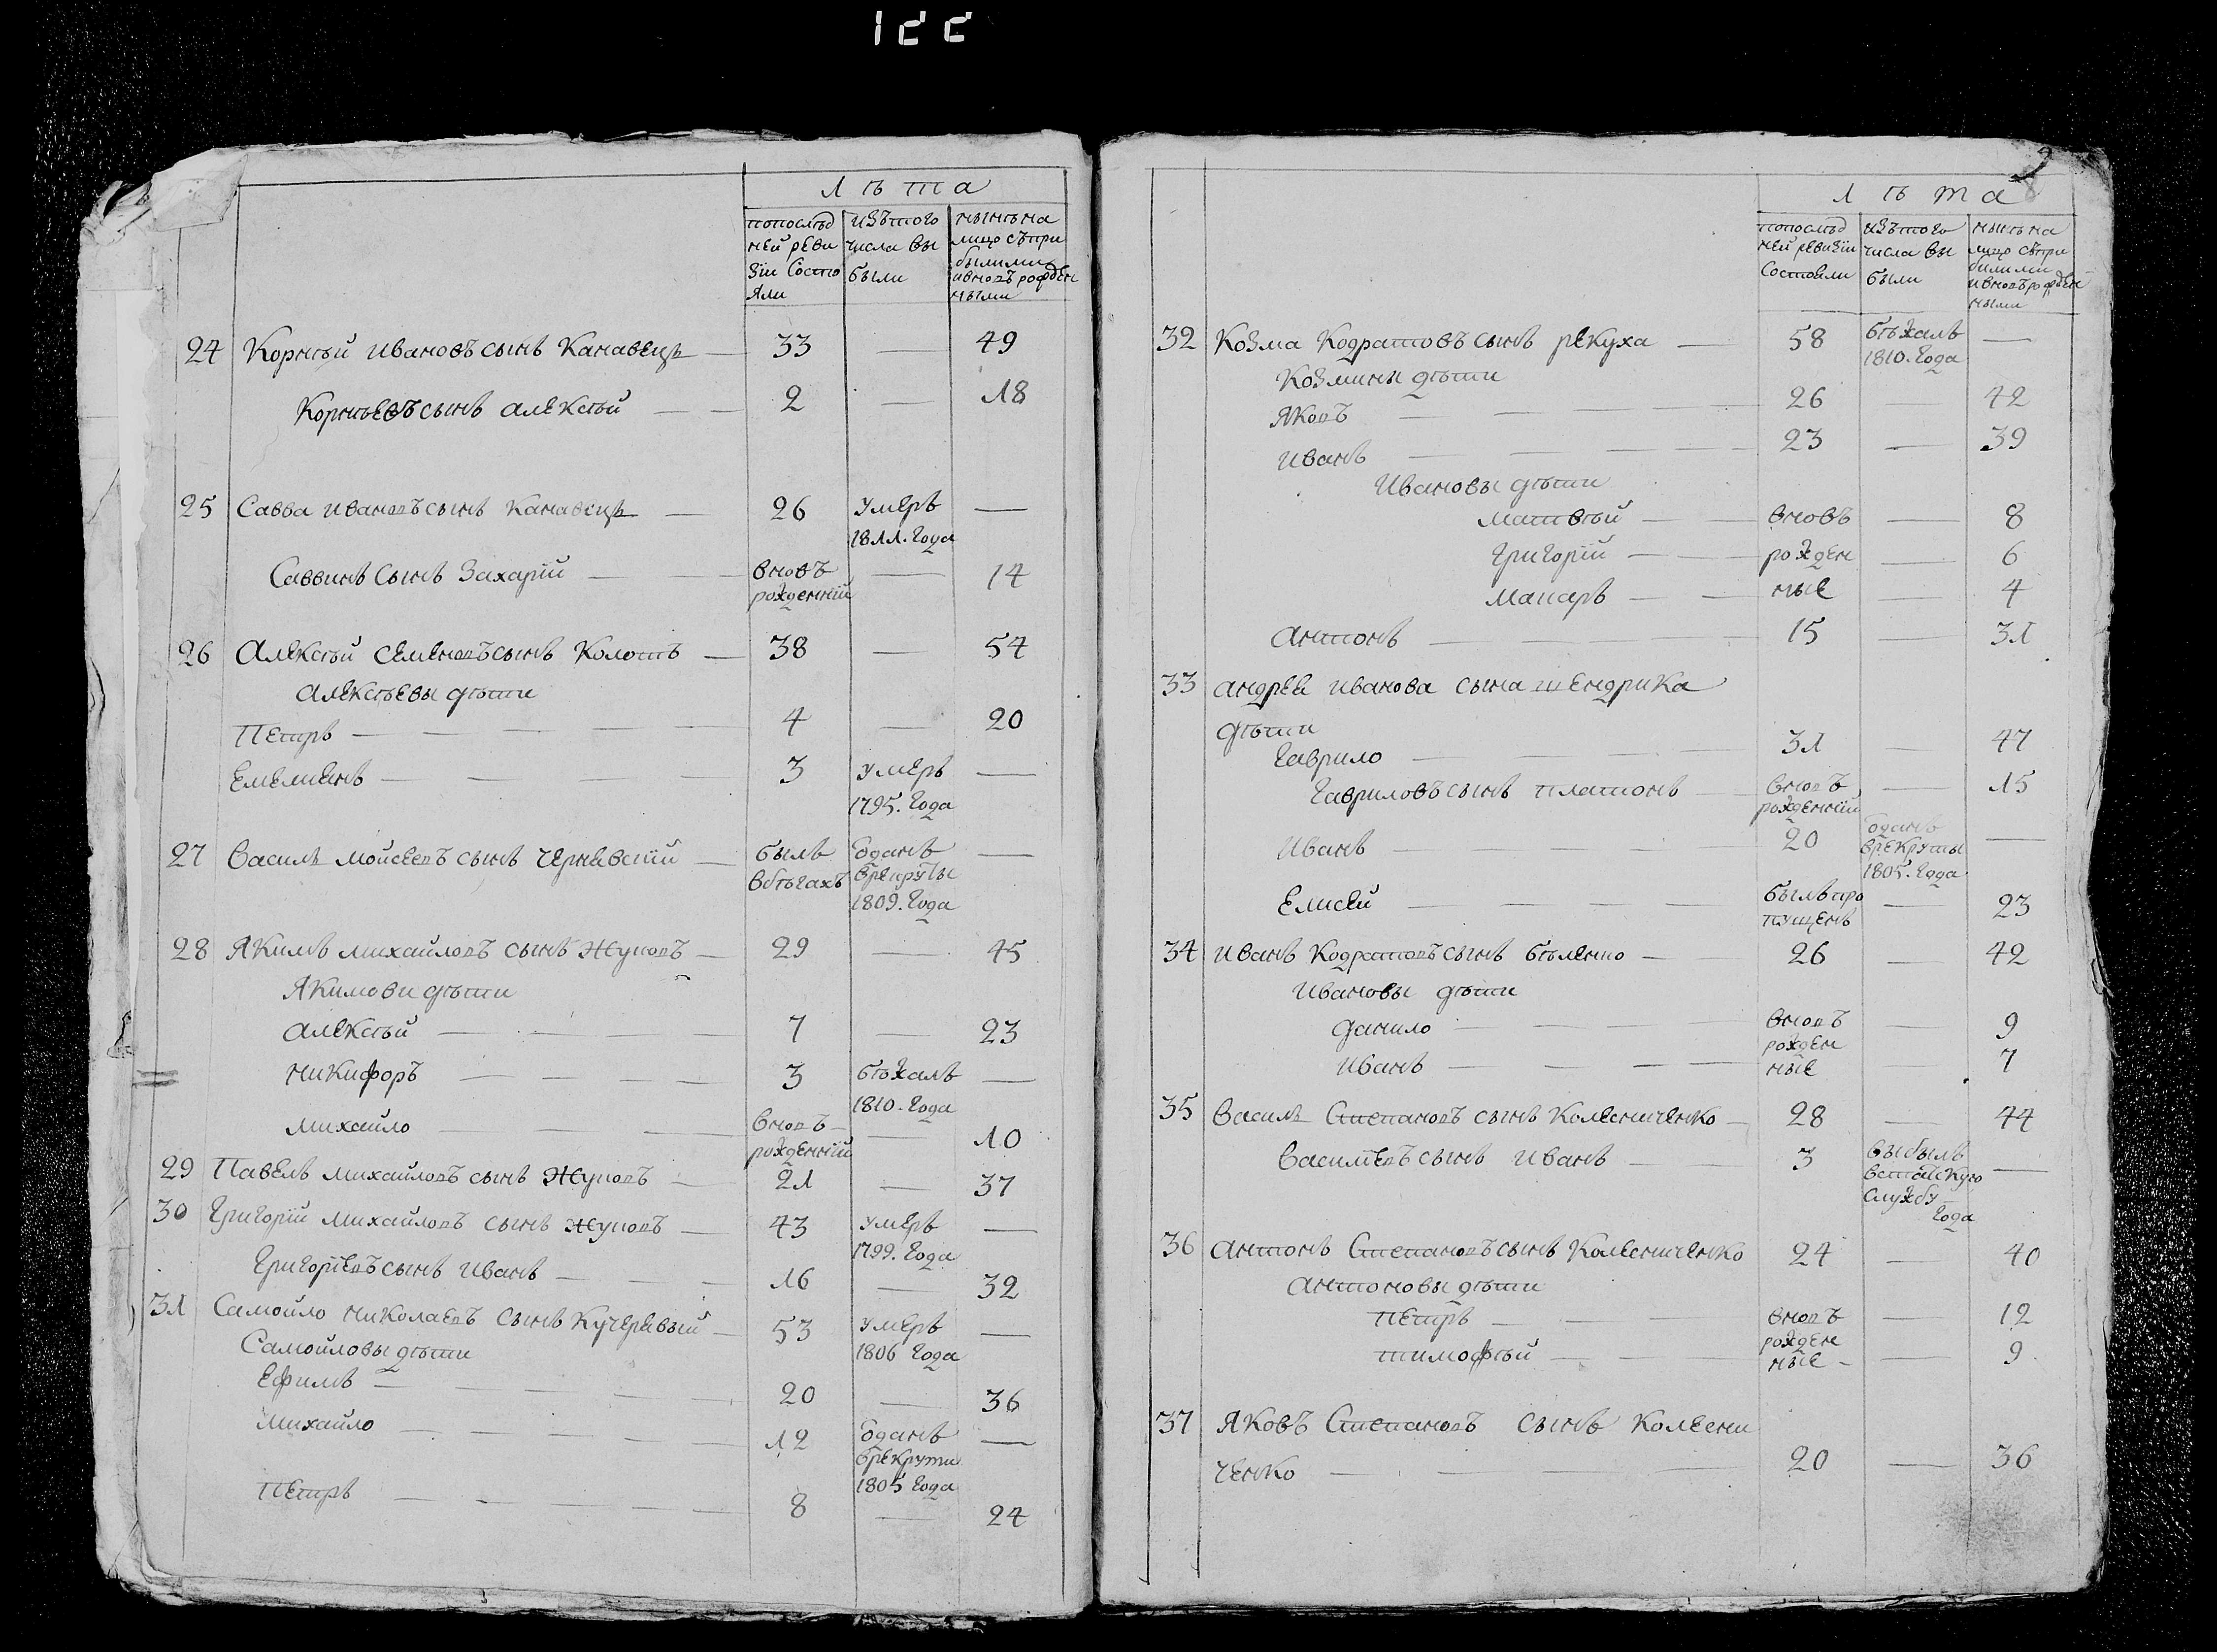 122
Лѣта
попослѣд ней реви зіи Состо яли
изътого числа вы были
нынѣ на лицо съпри былыми ивновъ рожден ными
24 Корнѣй ивановъ сынъ Канавецъ — 33 — 49
Корнѣевъ сынъ алексѣй — — 2 — 18
25 Савва ивановъ сынъ Канавецъ — 26 умеръ 1811. Года —
Саввинъ сынъ Захарій — — вновъ рожденній — 14
26 Алексѣй семеновъ сынъ Колотъ — 38 — 54
алексѣевы дѣти
Петръ — — — — — 4 — 20
Емелиянъ — — — — 3 умеръ 1795. Года —
27 василь мойсеевъ сынъ чернявскій — былъ вбѣгахъ одданъ врекруты 1809. Года —
28 Якимъ михайловъ сынъ Жуковъ — 29 — 45
Якимови дѣти
алексѣй — — — 7 — 23
никифоръ — — — — 3 бѣжалъ 1810. Года —
михайло — — — вновъ рожденній — 10
29 Павелъ михайловъ сынъ Жуковъ — 21 — 37
30 Григорій михайловъ сынъ жуковъ — 43 умеръ 1799. Года —
Григоріевъ сынъ иванъ — — — 16 — 32
31 Самойло николаевъ сынъ Кучерявый — 53 умеръ 1806 Года —
Самойловы дѣти
Ефимъ — — — — — 20 — 36
михайло — — — — — 12 одданъ врекрути 1805 Года —
петръ — — — — — 8 — 24
9
Лѣта
попослѣд ней ревизіи Состояли
изътого числа вы были
нынѣ на лицо съпри былими ивновъ рожден ными
32 Козма Кодратовъ сынъ рекуха — 58 бѣжалъ 1810. Года —
Козмины дѣти
яковъ — — — 26 — 42
иванъ — — — — 23 — 39
Ивановы дѣти
матвѣй — — вновъ — 8
григорій — — рожден — 6
макаръ — — ные — 4
антонъ — — — 15 — 31
33 андрея иванова сына шендрика
дѣти
Гаврило — — — 31 — 47
Гавриловъ сынъ платонъ — вновъ рожденній — 15
Иванъ — — — — 20 одданъ врекруты 1805. Года —
Елисей — — — — былъ про пущенъ — 23
34 иванъ Кодратовъ сынъ бѣленко — 26 — 42
Ивановы дѣти
данило — — — вновъ — 9
рожден
иванъ — — — — ные — 7
35 василь Степановъ сынъ Колесниченко — 28 — 44
василіевъ сынъ иванъ — — 3 выбылъ
службу Года —
36 антонъ Степановъ сынъ Колесниченко 24 — 40
антоновы дѣти
петръ — — — вновъ — 12
рожден
тимофѣй — — ные — — 9
37 яковъ Степановъ сынъ Колесни
ченко — — — — 20 — 36